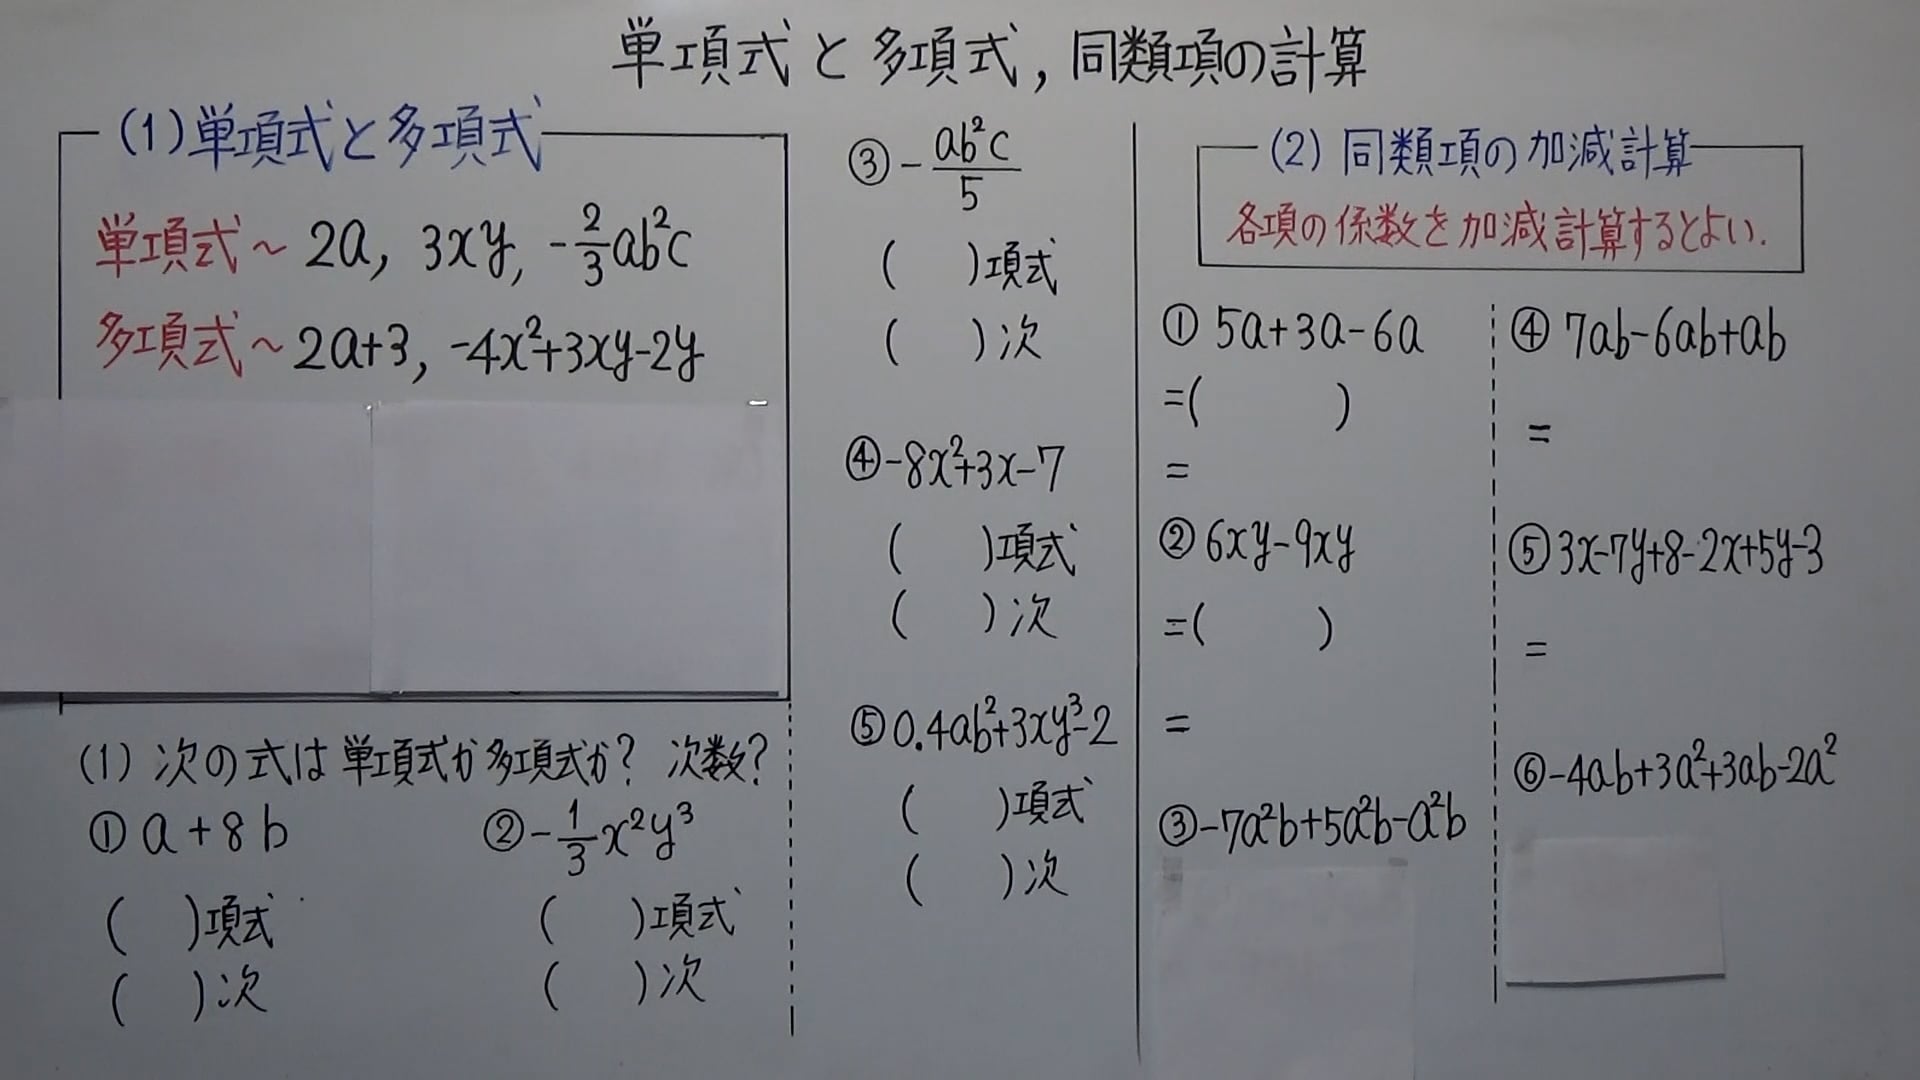 単項式と多項式，同類項の計算
(1)単項式と多項式
単項式～ 2a, 3xy, -2/3ab²c
多項式～ 2a+3, -4x²+3xy-2y
(1) 次の式は単項式か多項式か? 次数?
① a+8b
(　　)項式
(　　)次
② -1/3x²y³
(　　)項式
(　　)次
③ -ab²c/5
(　　)項式
(　　)次
④ -8x²+3x-7
(　　)項式
(　　)次
⑤ 0.4ab²+3xy³-2
(　　)項式
(　　)次
(2) 同類項の加減計算
各項の係数を加減計算するとよい.
① 5a+3a-6a
=(　　　)
=
② 6xy-9xy
=(　　　)
=
③ -7a²b+5a²b-a²b
④ 7ab-6ab+ab
=
⑤ 3x-7y+8-2x+5y-3
=
⑥ -4ab+3a²+3ab-2a²